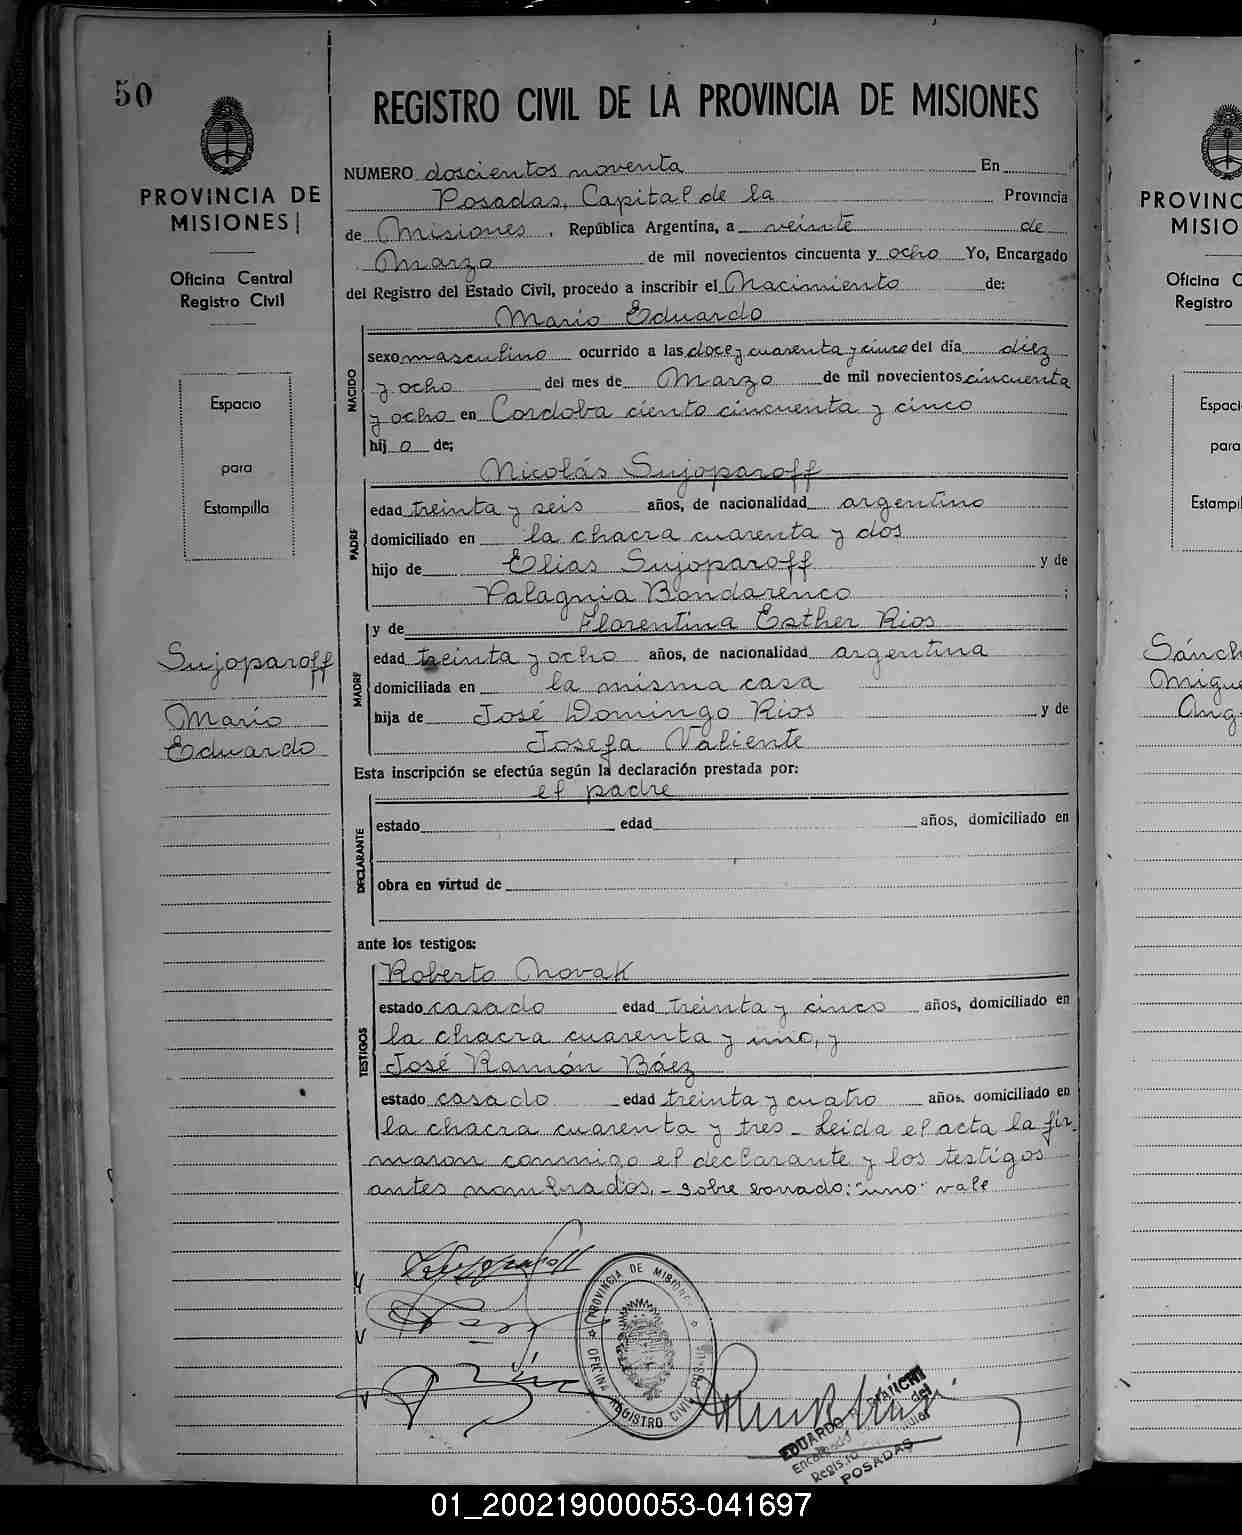 50
PROVINCIA DE
MISIONES
Oficina Central
Registro Civil
Espacio
para
Estampilla
Sujoparoff
Mario
Eduardo
REGISTRO CIVIL DE LA PROVINCIA DE MISIONES
NUMERO doscientos noventa En
Posadas, Capital de la Provincia
de Misiones, República Argentina, a veinte de
Marzo de mil novecientos cincuenta y ocho Yo, Encargado
del Registro del Estado Civil, procedo a inscribir el Nacimiento de:
Mario Eduardo
NACIDO
sexo masculino ocurrido a las doce y cuarenta y cinco del día diez
y ocho del mes de Marzo de mil novecientos cincuenta
y ocho en Cordoba ciento cincuenta y cinco
hij o de;
Nicolás Sujoparoff
PADRE
edad treinta y seis años, de nacionalidad argentino
domiciliado en la chacra cuarenta y dos
hijo de Elias Sujoparoff y de
Palagnia Bondarenco ;
y de Florentina Esther Rios
MADRE
edad treinta y ocho años, de nacionalidad argentina
domiciliada en la misma casa
hija de José Domingo Rios y de
Josefa Valiente
Esta inscripción se efectúa según la declaración prestada por:
el padre
DECLARANTE
estado edad años, domiciliado en
obra en virtud de
ante los testigos:
TESTIGOS
Roberto Novak
estado casado edad treinta y cinco años, domiciliado en
la chacra cuarenta y uno, y
José Ramón Báez
estado casado edad treinta y cuatro años, domiciliado en
la chacra cuarenta y tres - Leida el acta la fir-
maron conmigo el declarante y los testigos
antes nombrados. - sobre borrado: "uno" vale
PROVINCIA DE MISIONES
OFICINA REGISTRO CIVIL POSADAS
EDUARDO BIANCHI
Encargado del
Registro
POSADAS
PROVINC
MISIO
Oficina C
Registro
Espaci
para
Estampi
Sánch
Migue
Ang
01_200219000053-041697